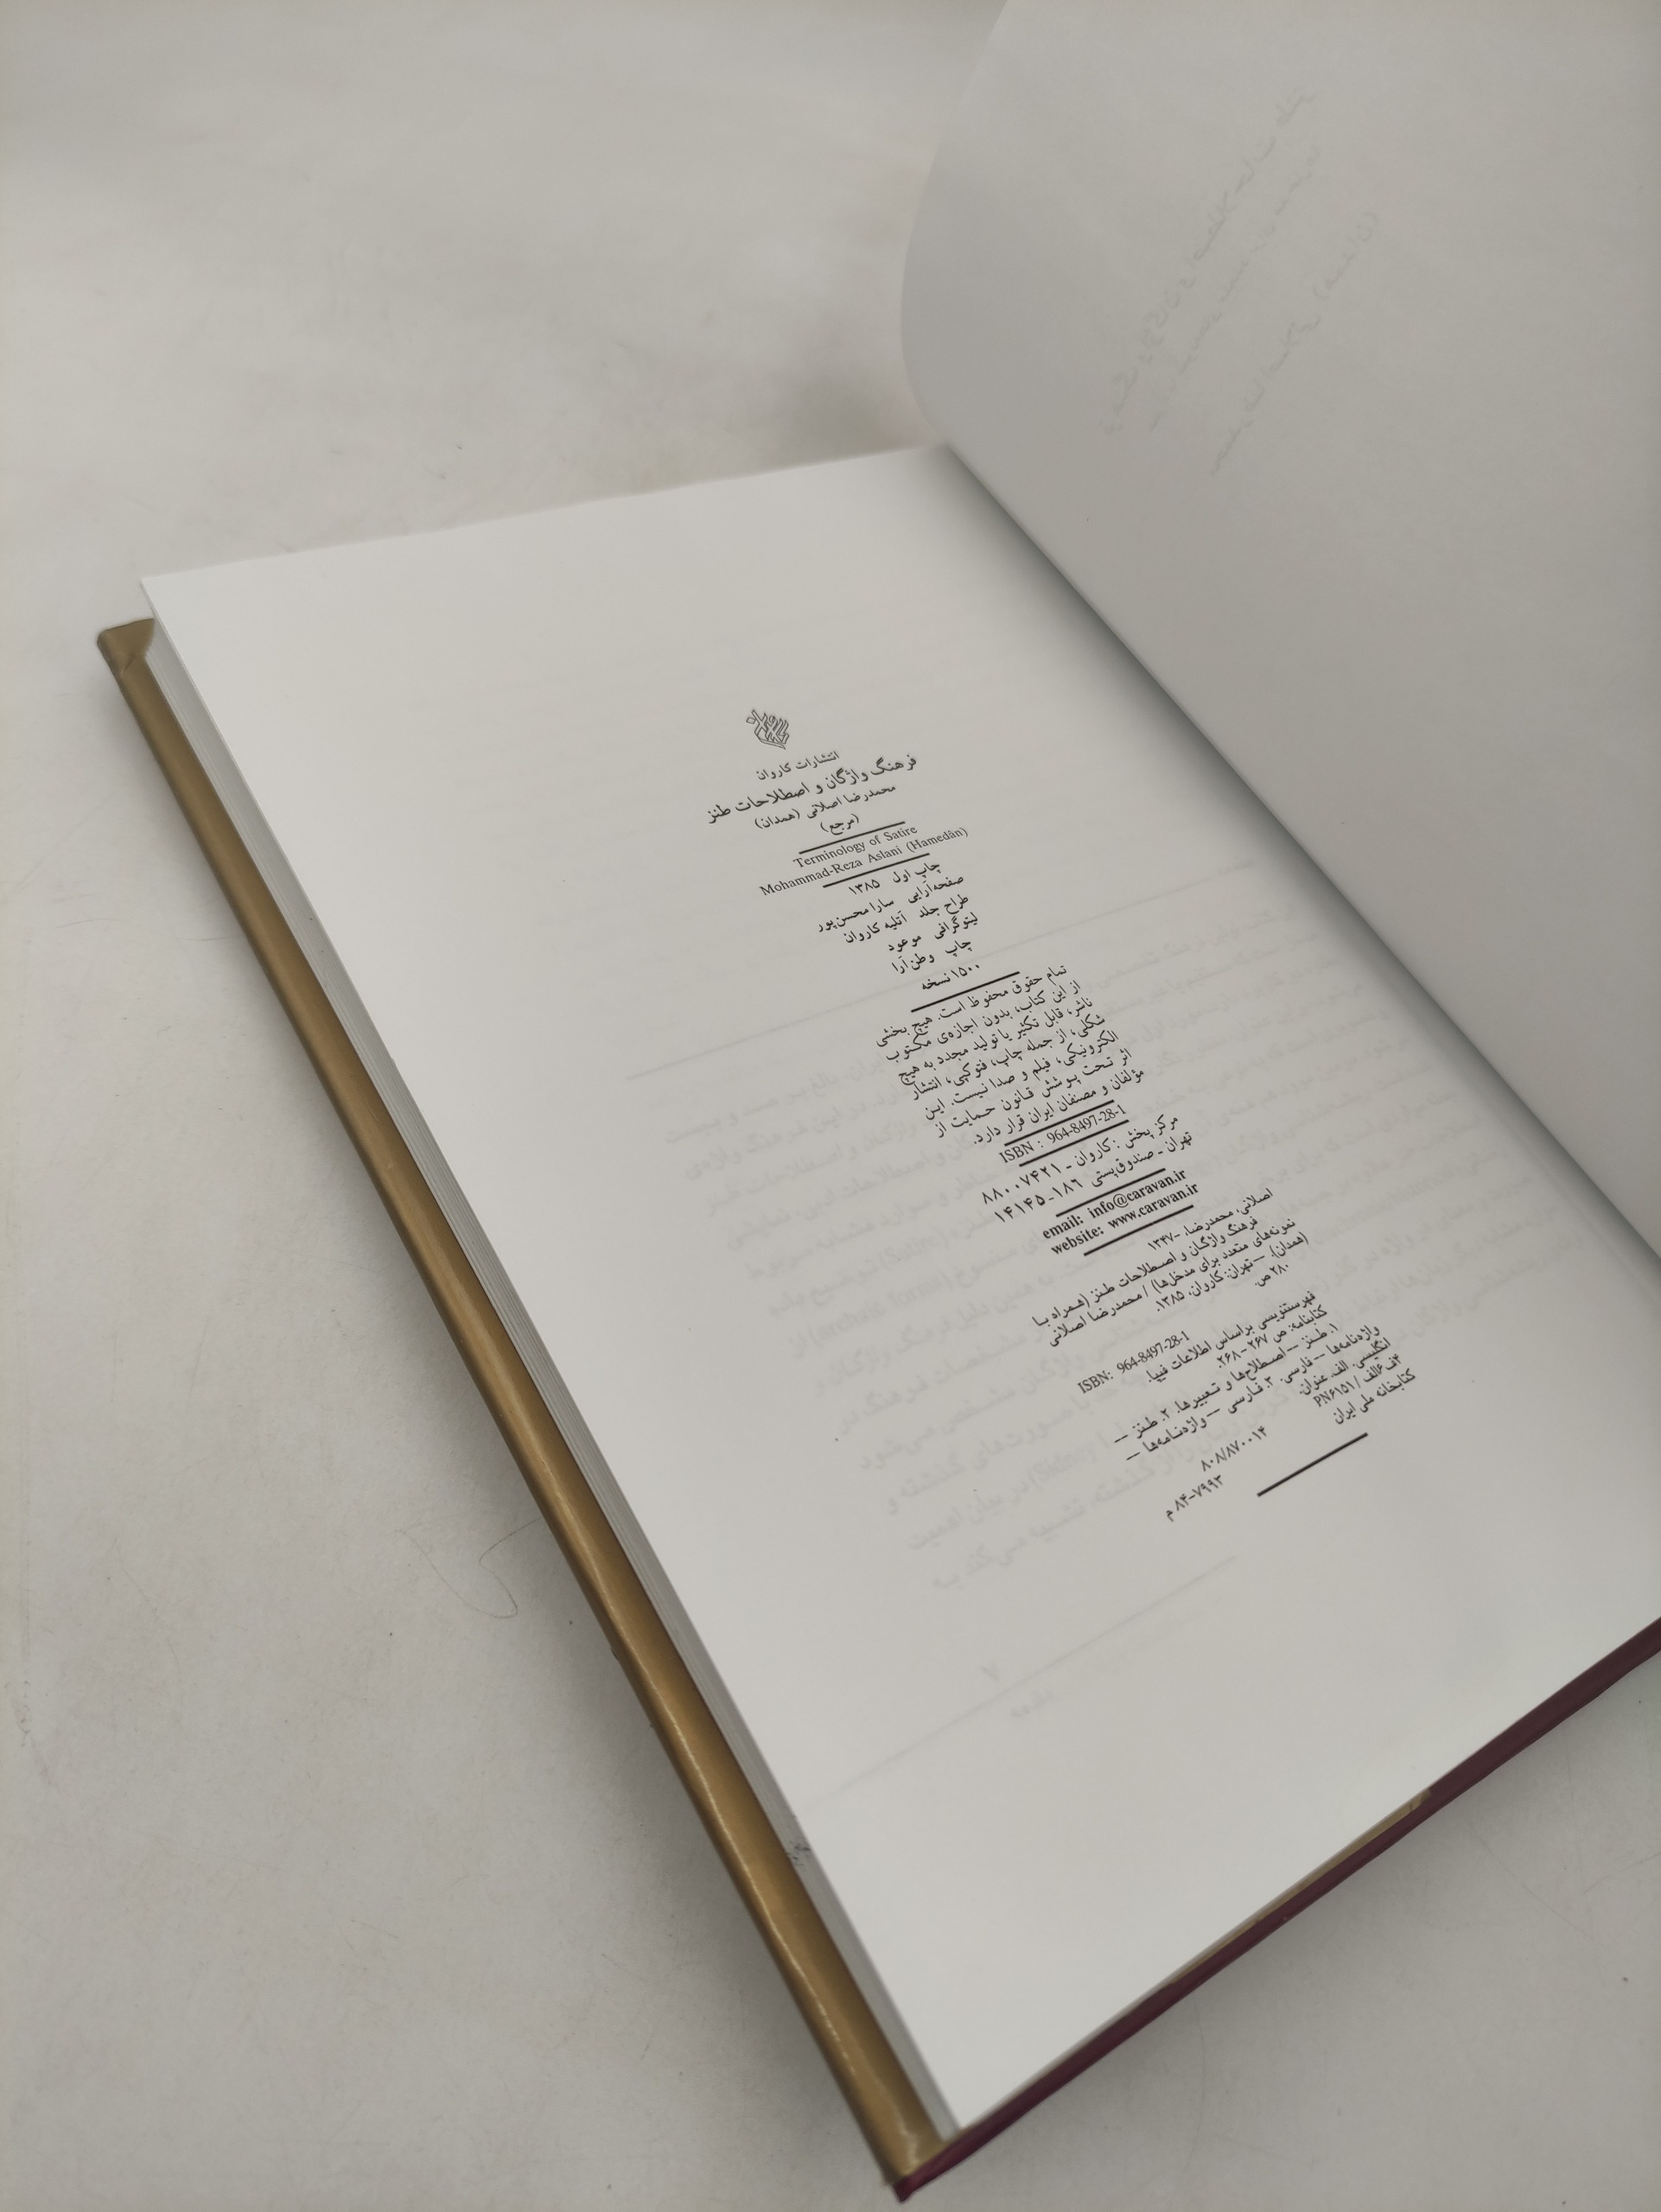 کاروان
انتشارات کاروان
فرهنگ واژگان و اصطلاحات طنز
محمدرضا اصلانی (همدان)
(مرجع)
Terminology of Satire
Mohammad-Reza Aslani (Hamedân)
چاپ اول ۱۳۸۵
صفحه‌آرایی سارا محسن‌پور
طراح جلد آتلیه کاروان
لیتوگرافی موعود
چاپ وطن‌آرا
۱۵۰۰ نسخه
تمام حقوق محفوظ است. هیچ بخشی
از این کتاب، بدون اجازه‌ی مکتوب
ناشر، قابل تکثیر یا تولید مجدد به هیچ
شکلی، از جمله چاپ، فتوکپی، انتشار
الکترونیکی، فیلم و صدا نیست. این
اثر تحت پوشش قانون حمایت از
مؤلفان و مصنفان ایران قرار دارد.
ISBN : 964-8497-28-1
مرکز پخش : کاروان ـ ۸۸۰۰۷۴۲۱
تهران ـ صندوق‌پستی ۱۸۶-۱۴۱۴۵
email: info@caravan.ir
website: www.caravan.ir
اصلانی، محمدرضا، -۱۳۴۷
فرهنگ واژگان و اصطلاحات طنز (همراه با
نمونه‌های متعدد برای مدخل‌ها) / محمدرضا اصلانی
(همدان). — تهران: کاروان، ۱۳۸۵.
۲۸۰ ص.
ISBN: 964-8497-28-1
فهرستنویسی براساس اطلاعات فیپا.
کتابنامه: ص ۲۶۷-۲۶۸.
۱. طنز — اصطلاح‌ها و تعبیرها. ۲. طنز —
واژه‌نامه‌ها — فارسی. ۳. فارسی — واژه‌نامه‌ها —
انگلیسی. الف. عنوان.
۸۰۸/۸۷۰۰۱۴ ۴ف۶الف / PN۶۱۵۱
۸۴-۷۹۹۳م کتابخانه ملی ایران